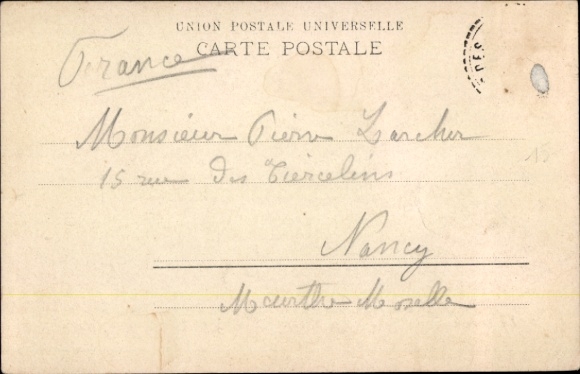 UNION POSTALE UNIVERSELLE
CARTE POSTALE
France
Monsieur Pierre Larcher
15 rue des Tiercelins
Nancy
Meurthe Moselle